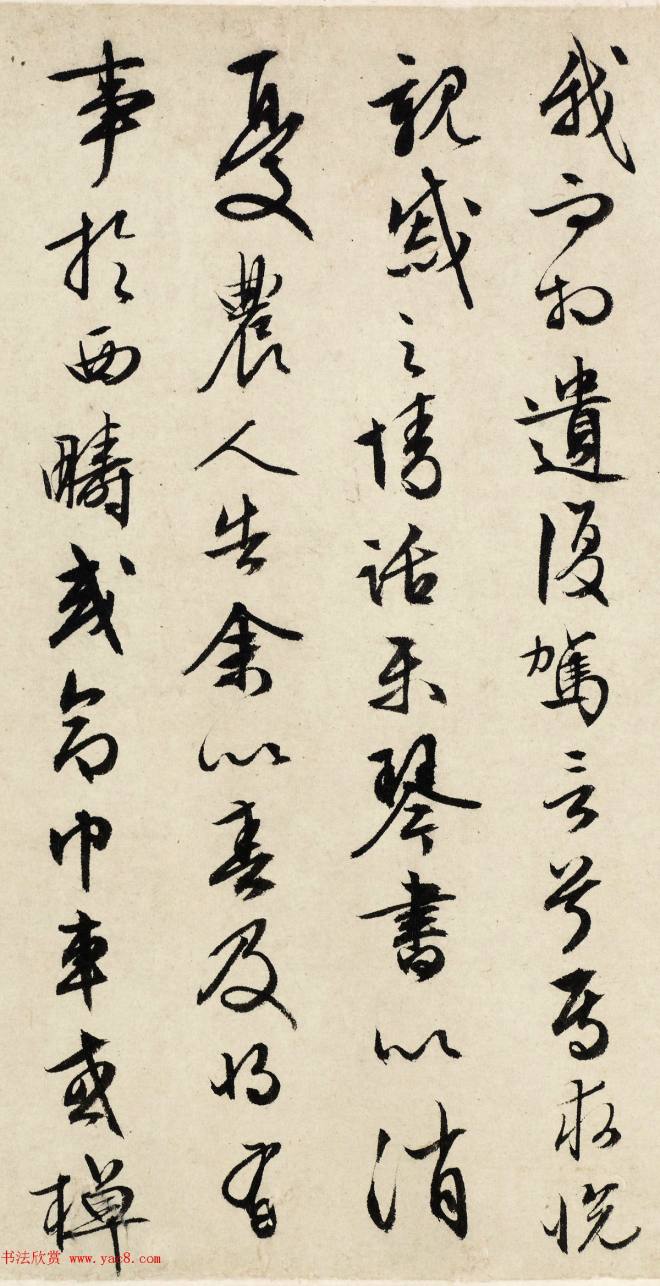 我而相遺復駕言兮焉求悅
親戚之情話樂琴書以消
憂農人告余以春及將有
事於西疇或命巾車或棹
书法欣赏 www.yac8.com